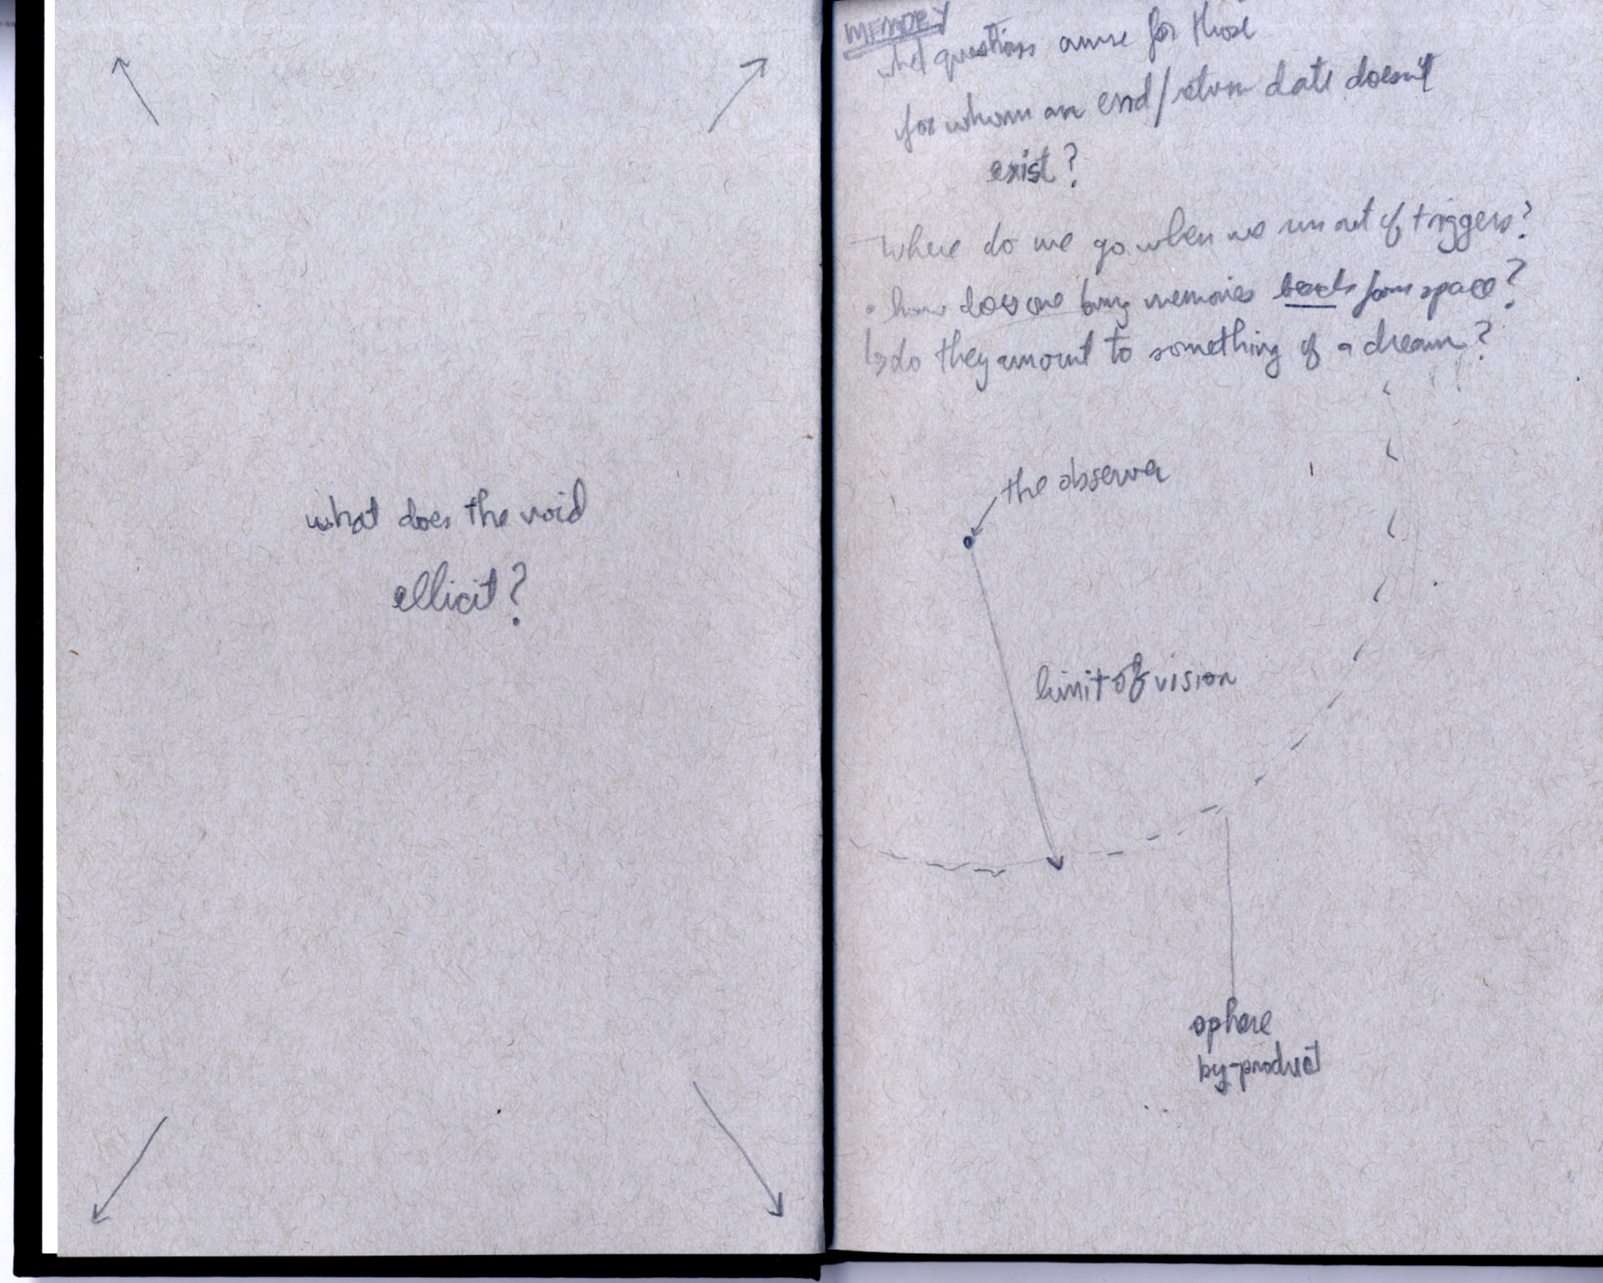 what does the void
ellicit?
MEMORY
what questions arise for those
for whom an end/return date doesn't
exist?
where do we go when we run out of triggers?
• how does one bring memories back from space?
↳ do they amount to something of a dream?
the observer
limit of vision
sphere
by-product